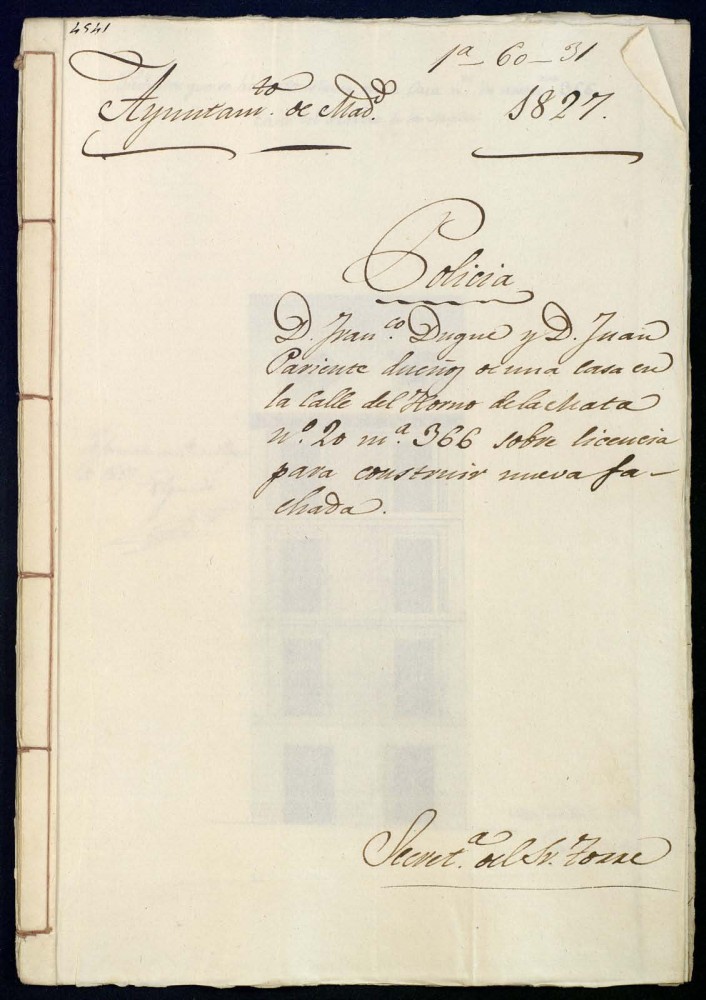 1ª-60-31
Ayuntam.to de Mad.d
1827.
Policia
D. Fran.co Duque y D. Juan
Pariente dueños de una casa en
la Calle del Horno de la Mata
nº. 20 mª. 366 sobre licencia
para construir nueva fa-
chada.
Secret.a del Sr. Torre